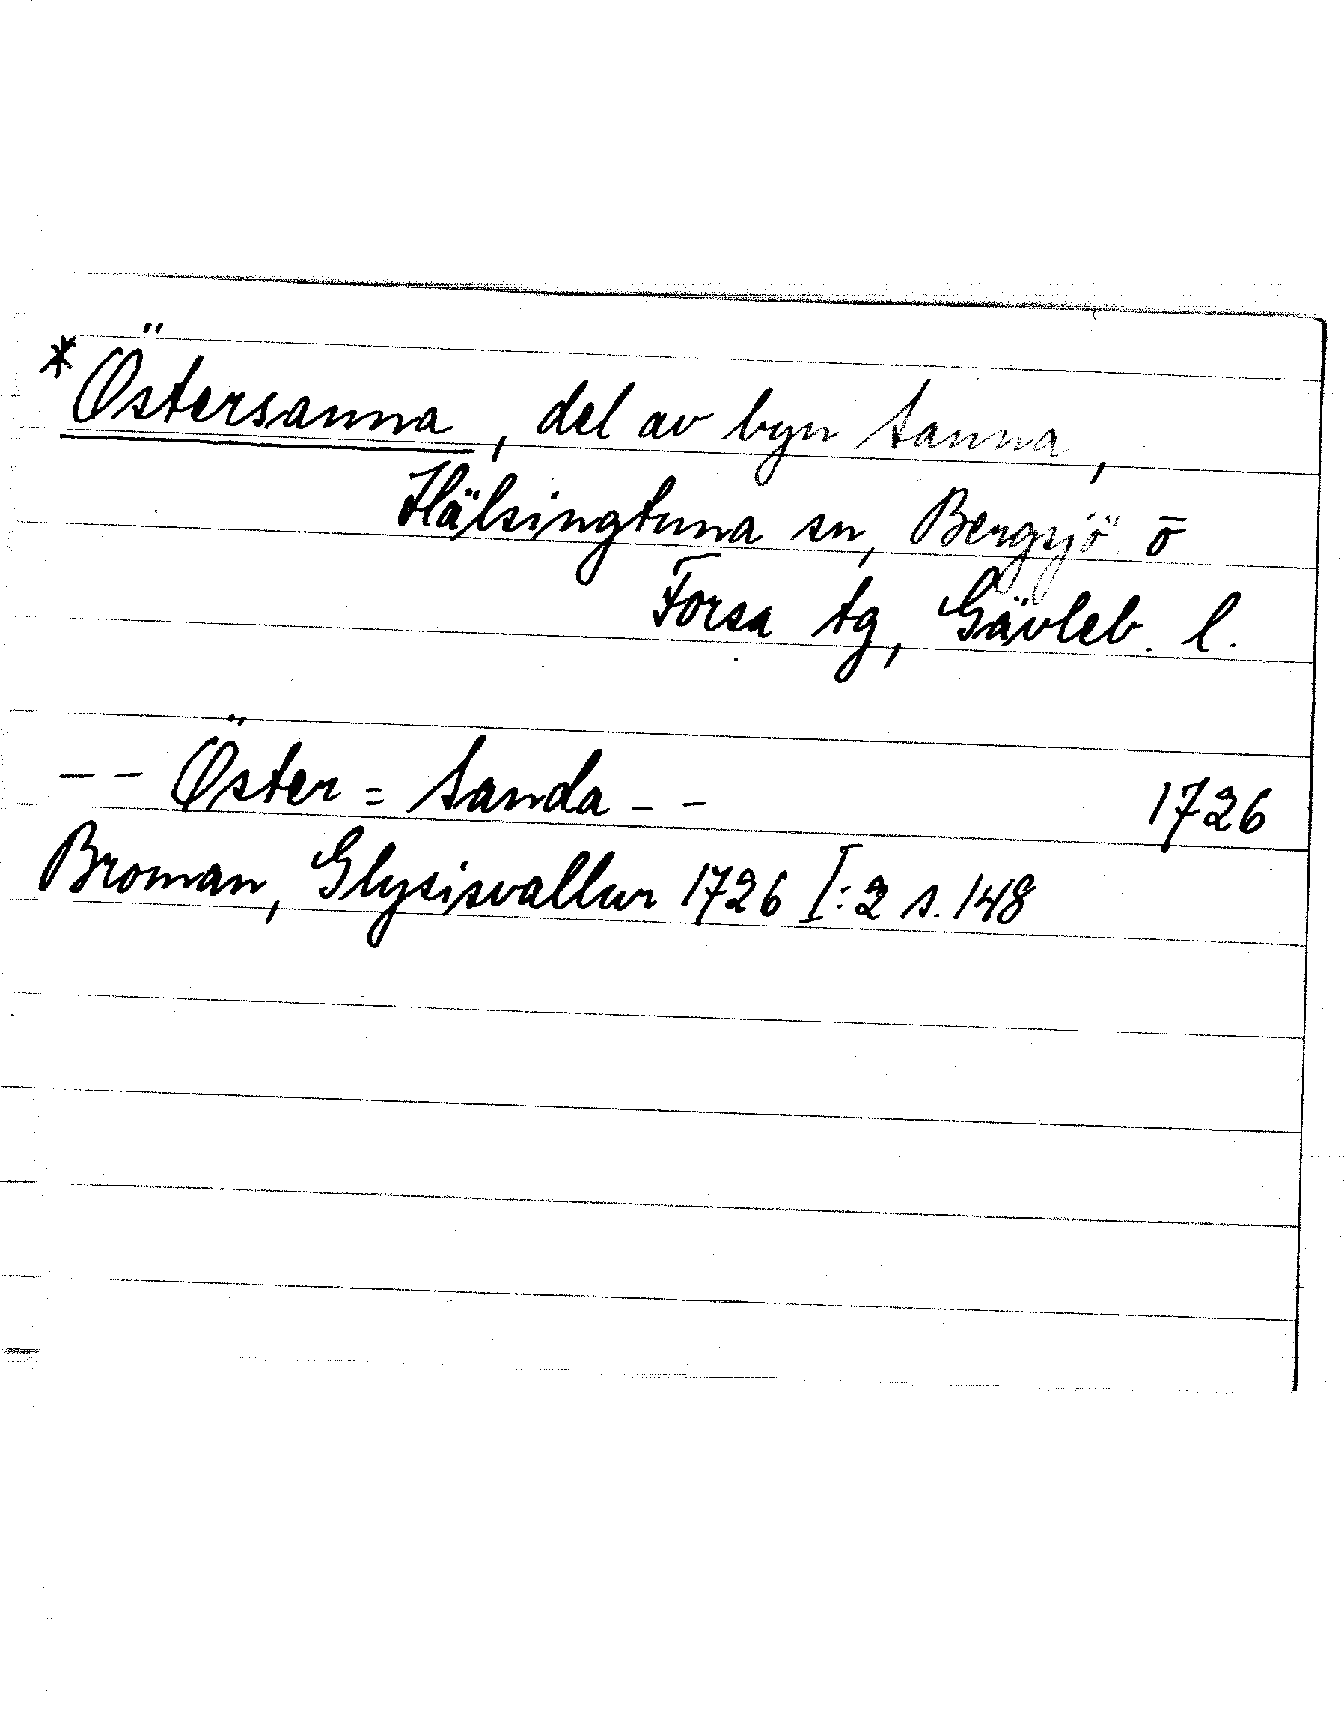 *Östersanna, del av byn Sanna,
Hälsingtuna sn, Bergsjö o
Forsa tg, Gävleb. l.
-- Öster= Sanda -- 1726
Broman, Glysisvallur 1726 I:2 s. 148